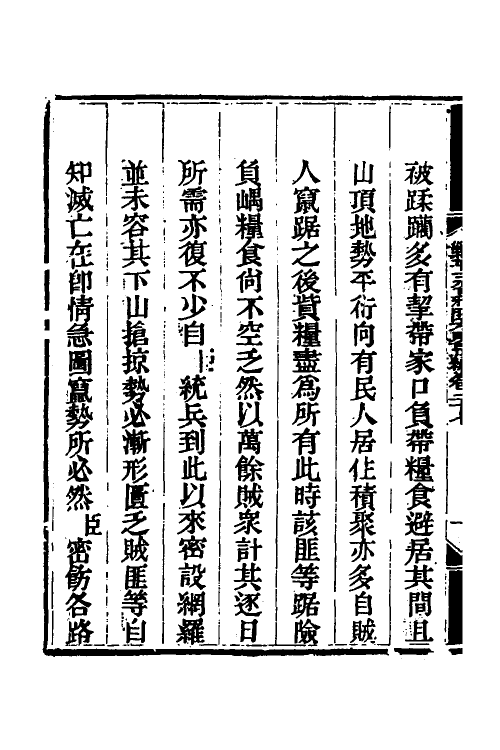 被蹂躪多有挈帶家口負帶糧食避居其間且
山頂地勢平衍向有民人居住積聚亦多自賊
人竄踞之後貲糧盡爲所有此時該匪等踞險
負嵎糧食尙不空乏然以萬餘賊衆計其逐日
所需亦復不少自臣統兵到此以來密設網羅
並未容其下山搶掠勢必漸形匱乏賊匪等自
知滅亡在卽情急圖竄勢所必然臣密飭各路